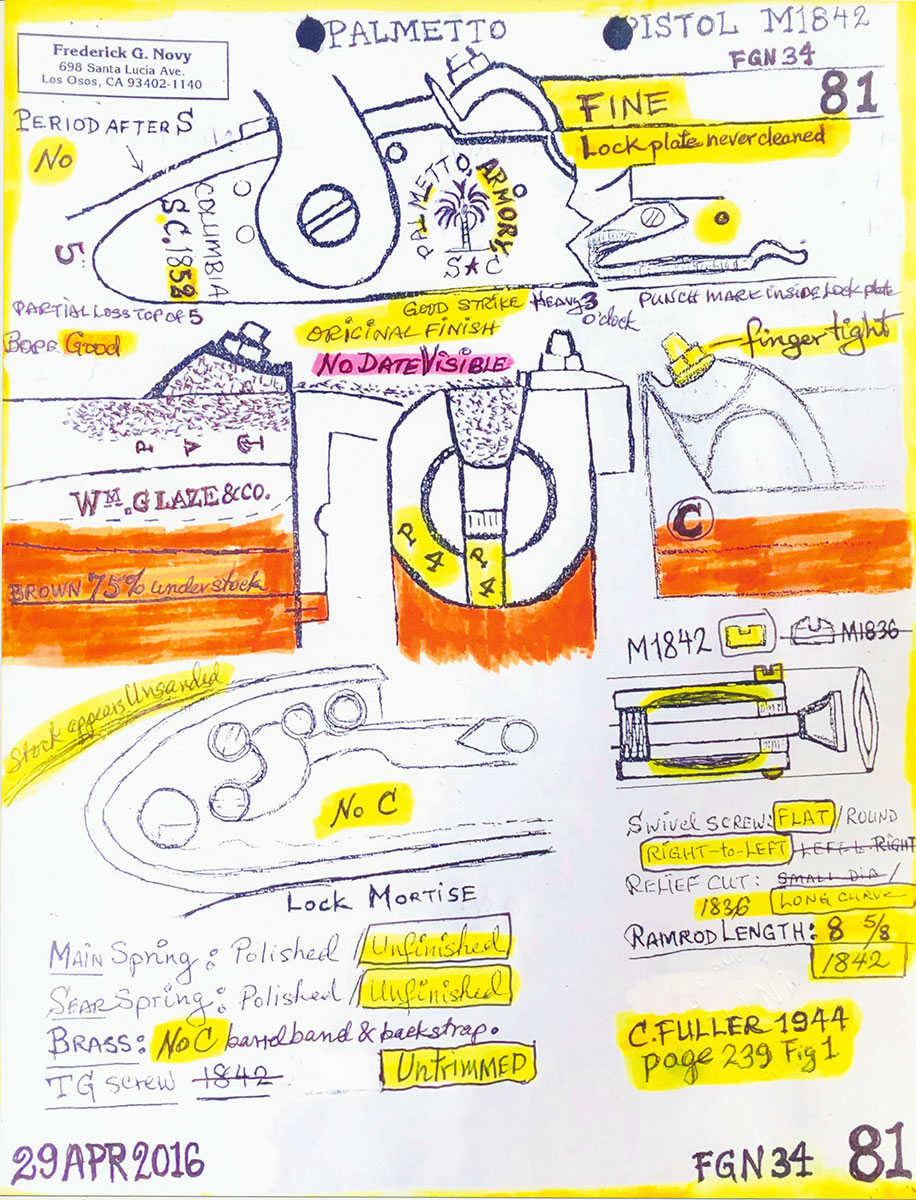 PALMETTO PISTOL M1842
FGN 34
81
Frederick G. Novy
698 Santa Lucia Ave.
Los Osos, CA 93402-1140
FINE
Lock plate never cleaned
PERIOD AFTER S
No
5
COLUMBIA
S.C. 1852
PALMETTO, ARMORY
S★C
PARTIAL LOSS TOP OF 5
GOOD STRIKE HEAVY 3 o'clock
ORIGINAL FINISH
PUNCH MARK INSIDE Lock plate
BORE Good
NO DATE VISIBLE
finger tight
P A
WM. GLAZE & CO.
C
P 4
P 4
BROWN 75% under stock
M1842
M1836
Stock appears Unsanded
No C
LOCK MORTISE
SWIVEL SCREW: FLAT/ROUND
RIGHT-to-LEFT LEFT to RIGHT
RELIEF CUT: SMALL DIA/
1836 LONG CURVE
RAMROD LENGTH: 8 5/8
1842
MAIN Spring: Polished/Unfinished
SEAR Spring: Polished/Unfinished
BRASS: No C barrel band & backstrap.
TG SCREW 1842 UNTRIMMED
C. FULLER 1944
page 239 Fig 1
29 APR 2016
FGN 34 81